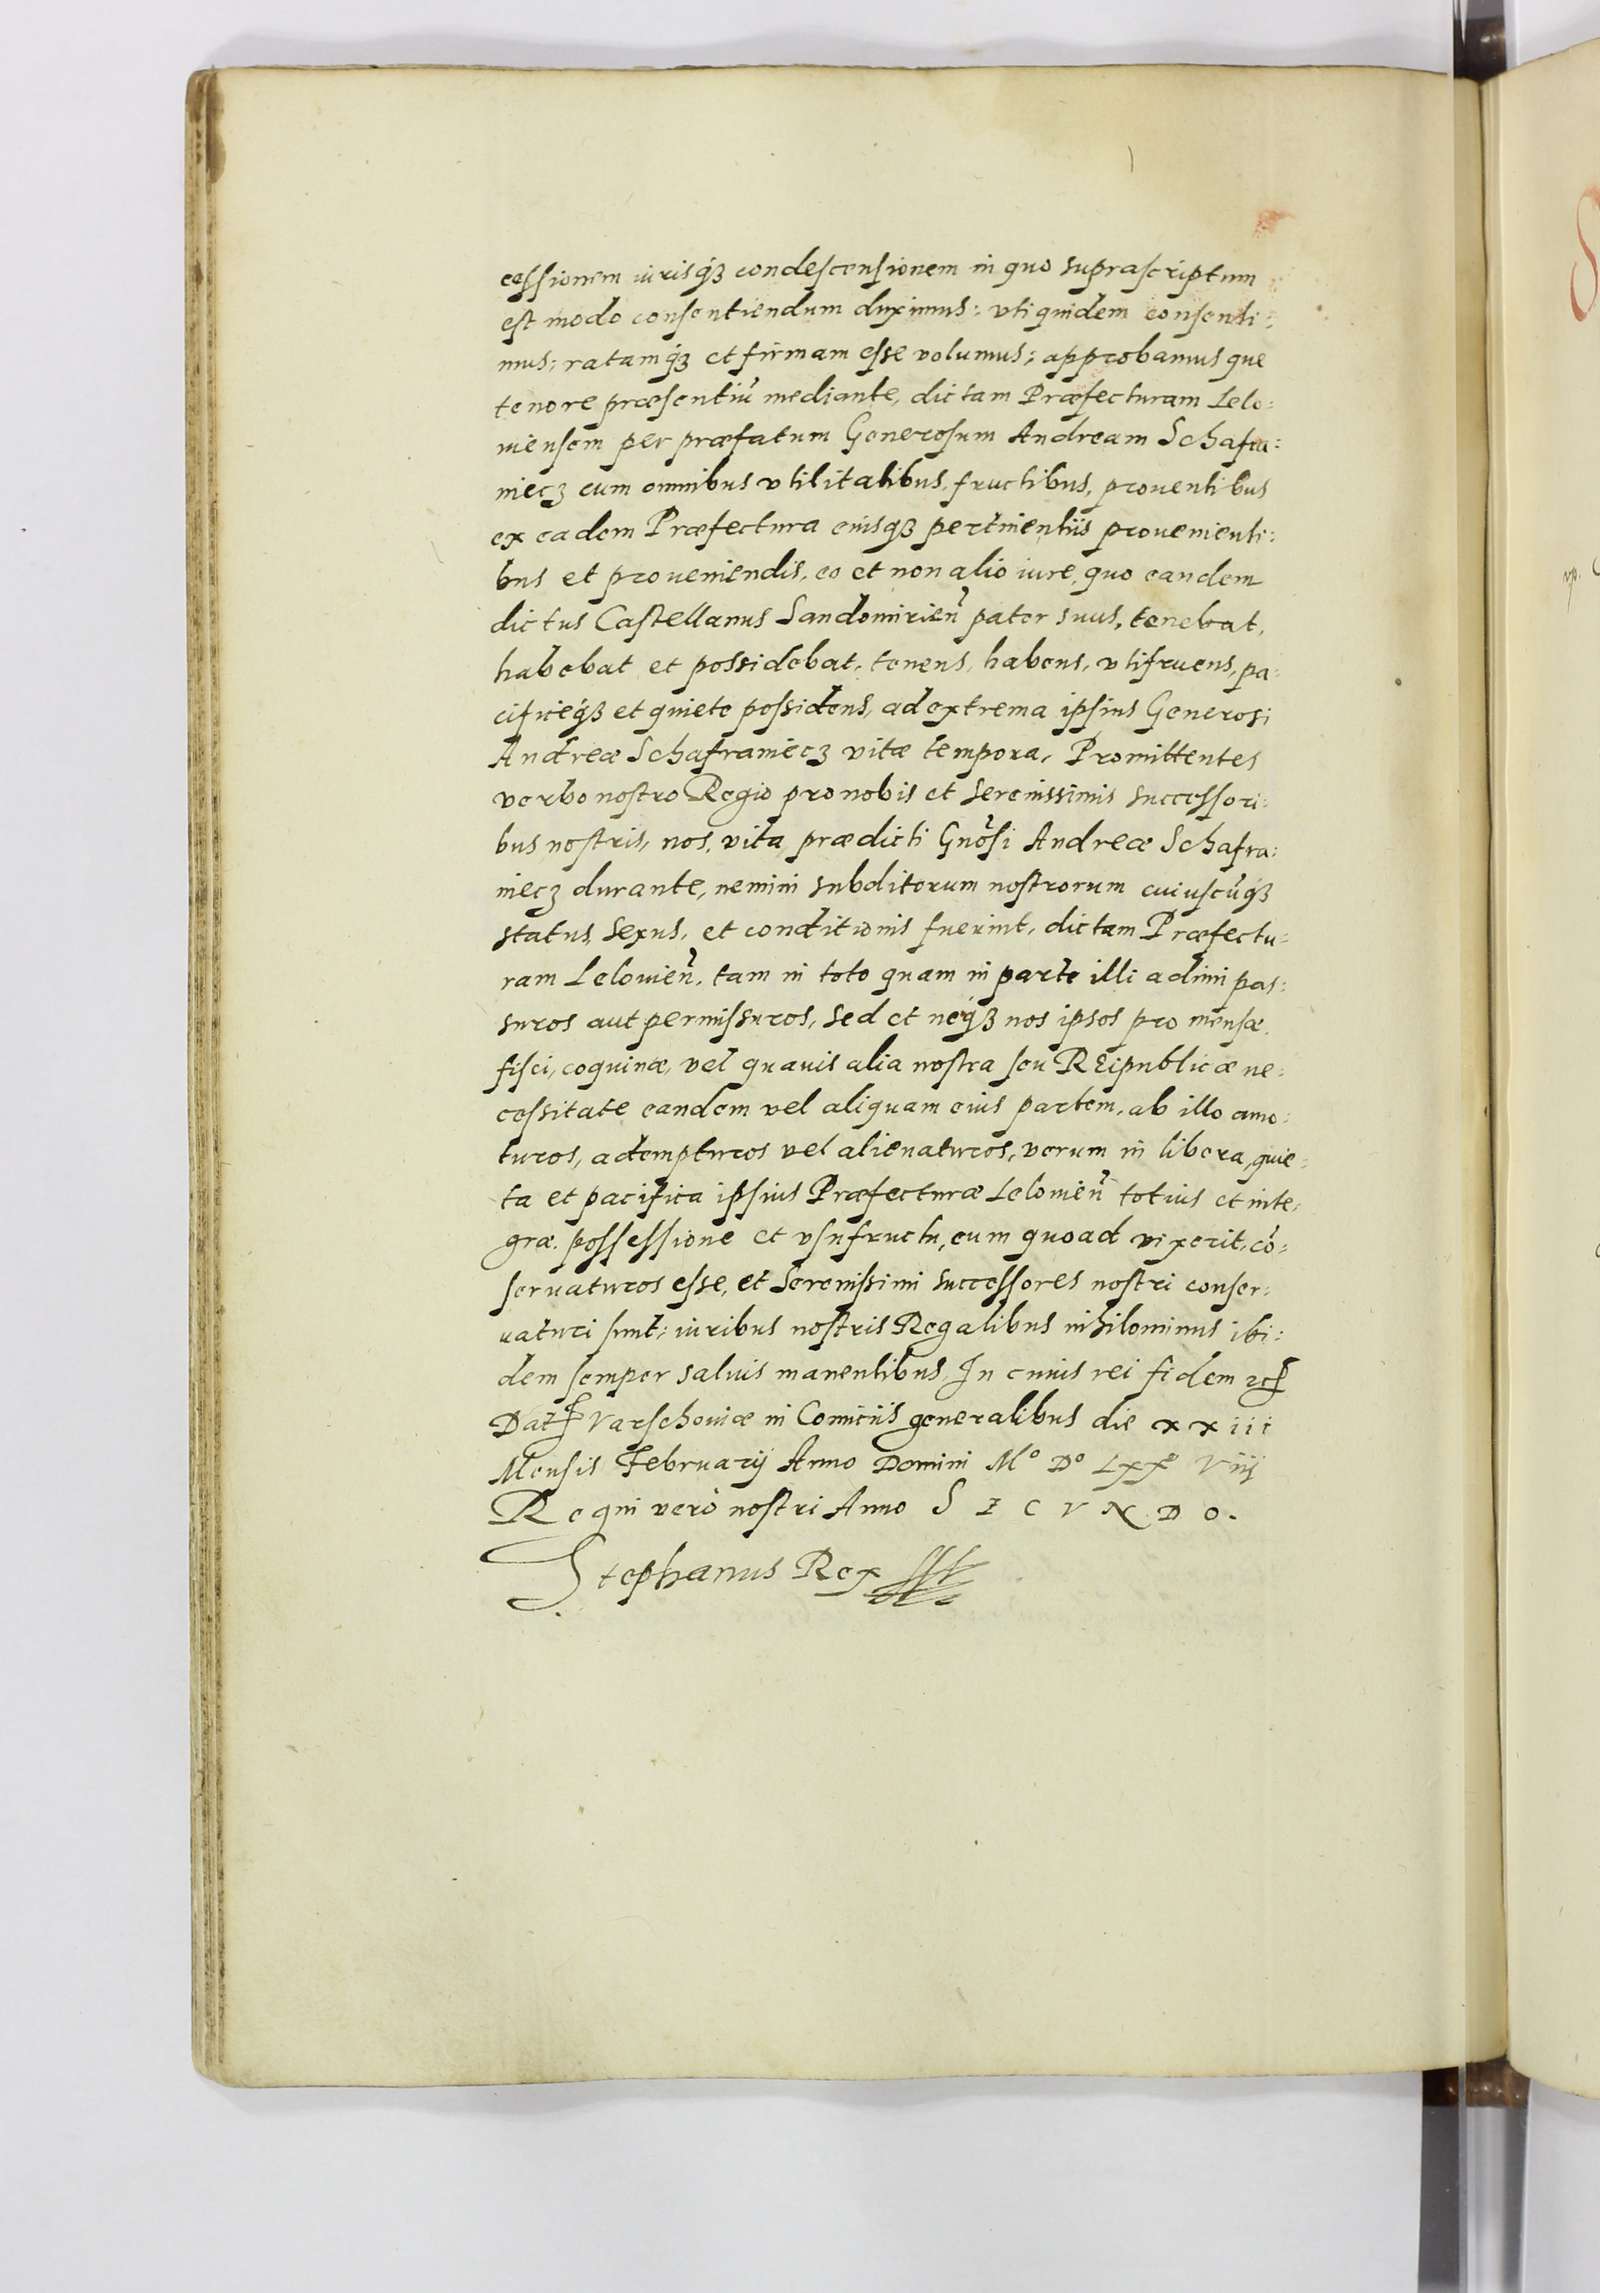 cessionem iurisq́ꝫ condescensionem in quo suprascriptum
est modo consentiendum duximus: vti quidem consenti:
mus; ratamq́ꝫ et firmam esse volumus; approbamus que
tenore præsentiũ mediante, dictam Præfecturam Lelo:
uiensem per præfatum Generosum Andream Schafra:
niecz cum omnibus vtilitatibus, fructibus, prouentibus
ex eadem Præfectura eiusq́ꝫ pertinentiis prouenienti:
bus et proueniendis, eo et non alio iure, quo eandem
dictus Castellanus Sandomirieñ pater suus, tenebat,
habebat et possidebat, tenens, habens, vtifruens, pa:
cificeq́ꝫ et quiete possidens, ad extrema ipsius Generosi
Andreæ Schafraniecz vitæ tempora, Promittentes
verbo nostro Regio pro nobis et Serenissimis successori:
bus nostris, nos, vita prædicti Gnõsi Andreæ Schafra:
niecz durante, nemini subditorum nostrorum cuiuscũq́ꝫ
status, sexus, et conditionis fuerint, dictam Præfectu:
ram Lelouieñ, tam in toto quam in parte illi adimi pas:
suros aut permissuros, sed et neq́ꝫ nos ipsos pro mensæ,
fisci, coquinæ, vel quauis alia nostra seu REipublicæ ne:
cessitate eandem vel aliquam eius partem, ab illo amo:
turos, adempturos vel alienaturos, verum in libera, quie:
ta et pacifica ipsius Præfecturæ Lelouieñ totius et inte:
græ, possessione et vsufructu, eum quoad vixerit, cõ:
seruaturos esse, et Serenissimi successores nostri conser:
uaturi sunt; iuribus nostris Regalibus nihilominus ibi:
dem semper saluis manentibus, In cuius rei fidem ꝛcꝭ
Datꝭ Varschouiæ in Comitiis generalibus die xxiii
Mensis Februarij Anno Domini M° D° Lxx° Viij
Regni verò nostri Anno SECVNDO.
Stephanus Rex